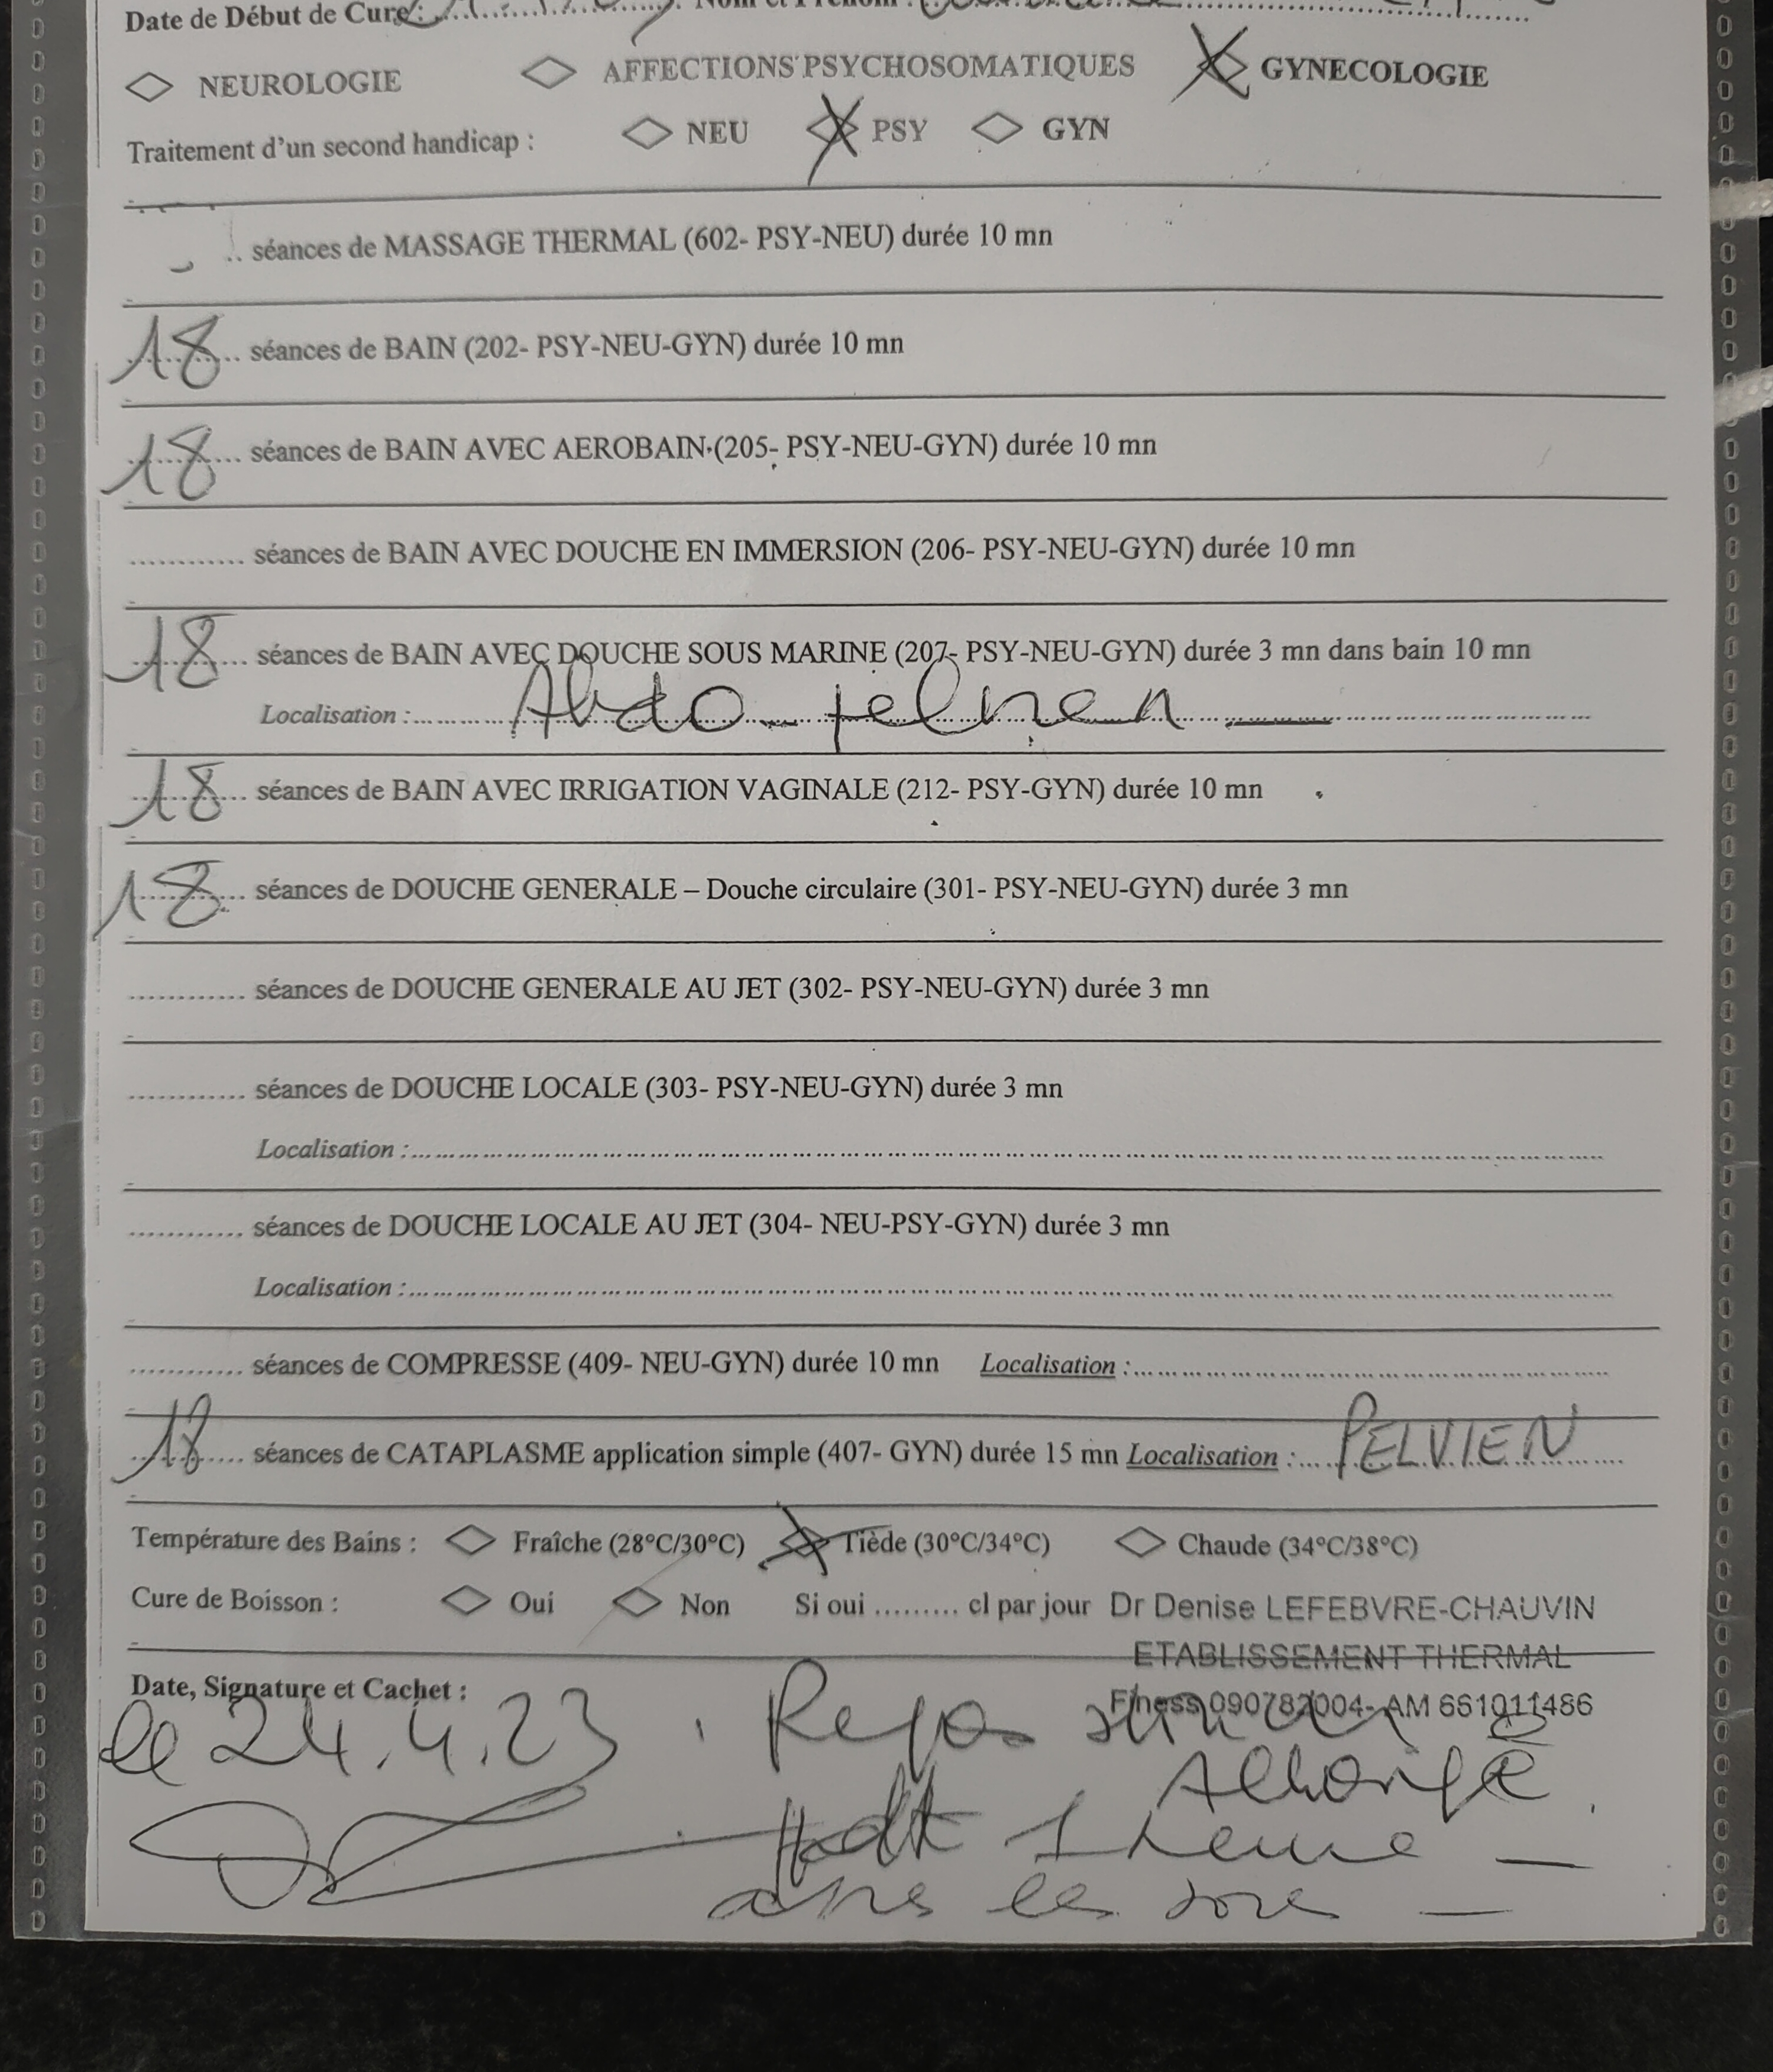 Date de Début de Cure :
NEUROLOGIE AFFECTIONS PSYCHOSOMATIQUES GYNECOLOGIE
Traitement d'un second handicap : NEU PSY GYN
séances de MASSAGE THERMAL (602- PSY-NEU) durée 10 mn
18 séances de BAIN (202- PSY-NEU-GYN) durée 10 mn
18 séances de BAIN AVEC AEROBAIN (205- PSY-NEU-GYN) durée 10 mn
............ séances de BAIN AVEC DOUCHE EN IMMERSION (206- PSY-NEU-GYN) durée 10 mn
18 séances de BAIN AVEC DOUCHE SOUS MARINE (207- PSY-NEU-GYN) durée 3 mn dans bain 10 mn
Localisation : Abdo-pelvien
18 séances de BAIN AVEC IRRIGATION VAGINALE (212- PSY-GYN) durée 10 mn
18 séances de DOUCHE GENERALE – Douche circulaire (301- PSY-NEU-GYN) durée 3 mn
............ séances de DOUCHE GENERALE AU JET (302- PSY-NEU-GYN) durée 3 mn
............ séances de DOUCHE LOCALE (303- PSY-NEU-GYN) durée 3 mn
Localisation :
............ séances de DOUCHE LOCALE AU JET (304- NEU-PSY-GYN) durée 3 mn
Localisation :
............ séances de COMPRESSE (409- NEU-GYN) durée 10 mn Localisation :
18 séances de CATAPLASME application simple (407- GYN) durée 15 mn Localisation : PELVIEN
Température des Bains : Fraîche (28°C/30°C) Tiède (30°C/34°C) Chaude (34°C/38°C)
Cure de Boisson : Oui Non Si oui ......... cl par jour Dr Denise LEFEBVRE-CHAUVIN
ETABLISSEMENT THERMAL
Date, Signature et Cachet : Finess 090782004- AM 661011486
le 24.4.23. Repos
Allongé
1 heure
les